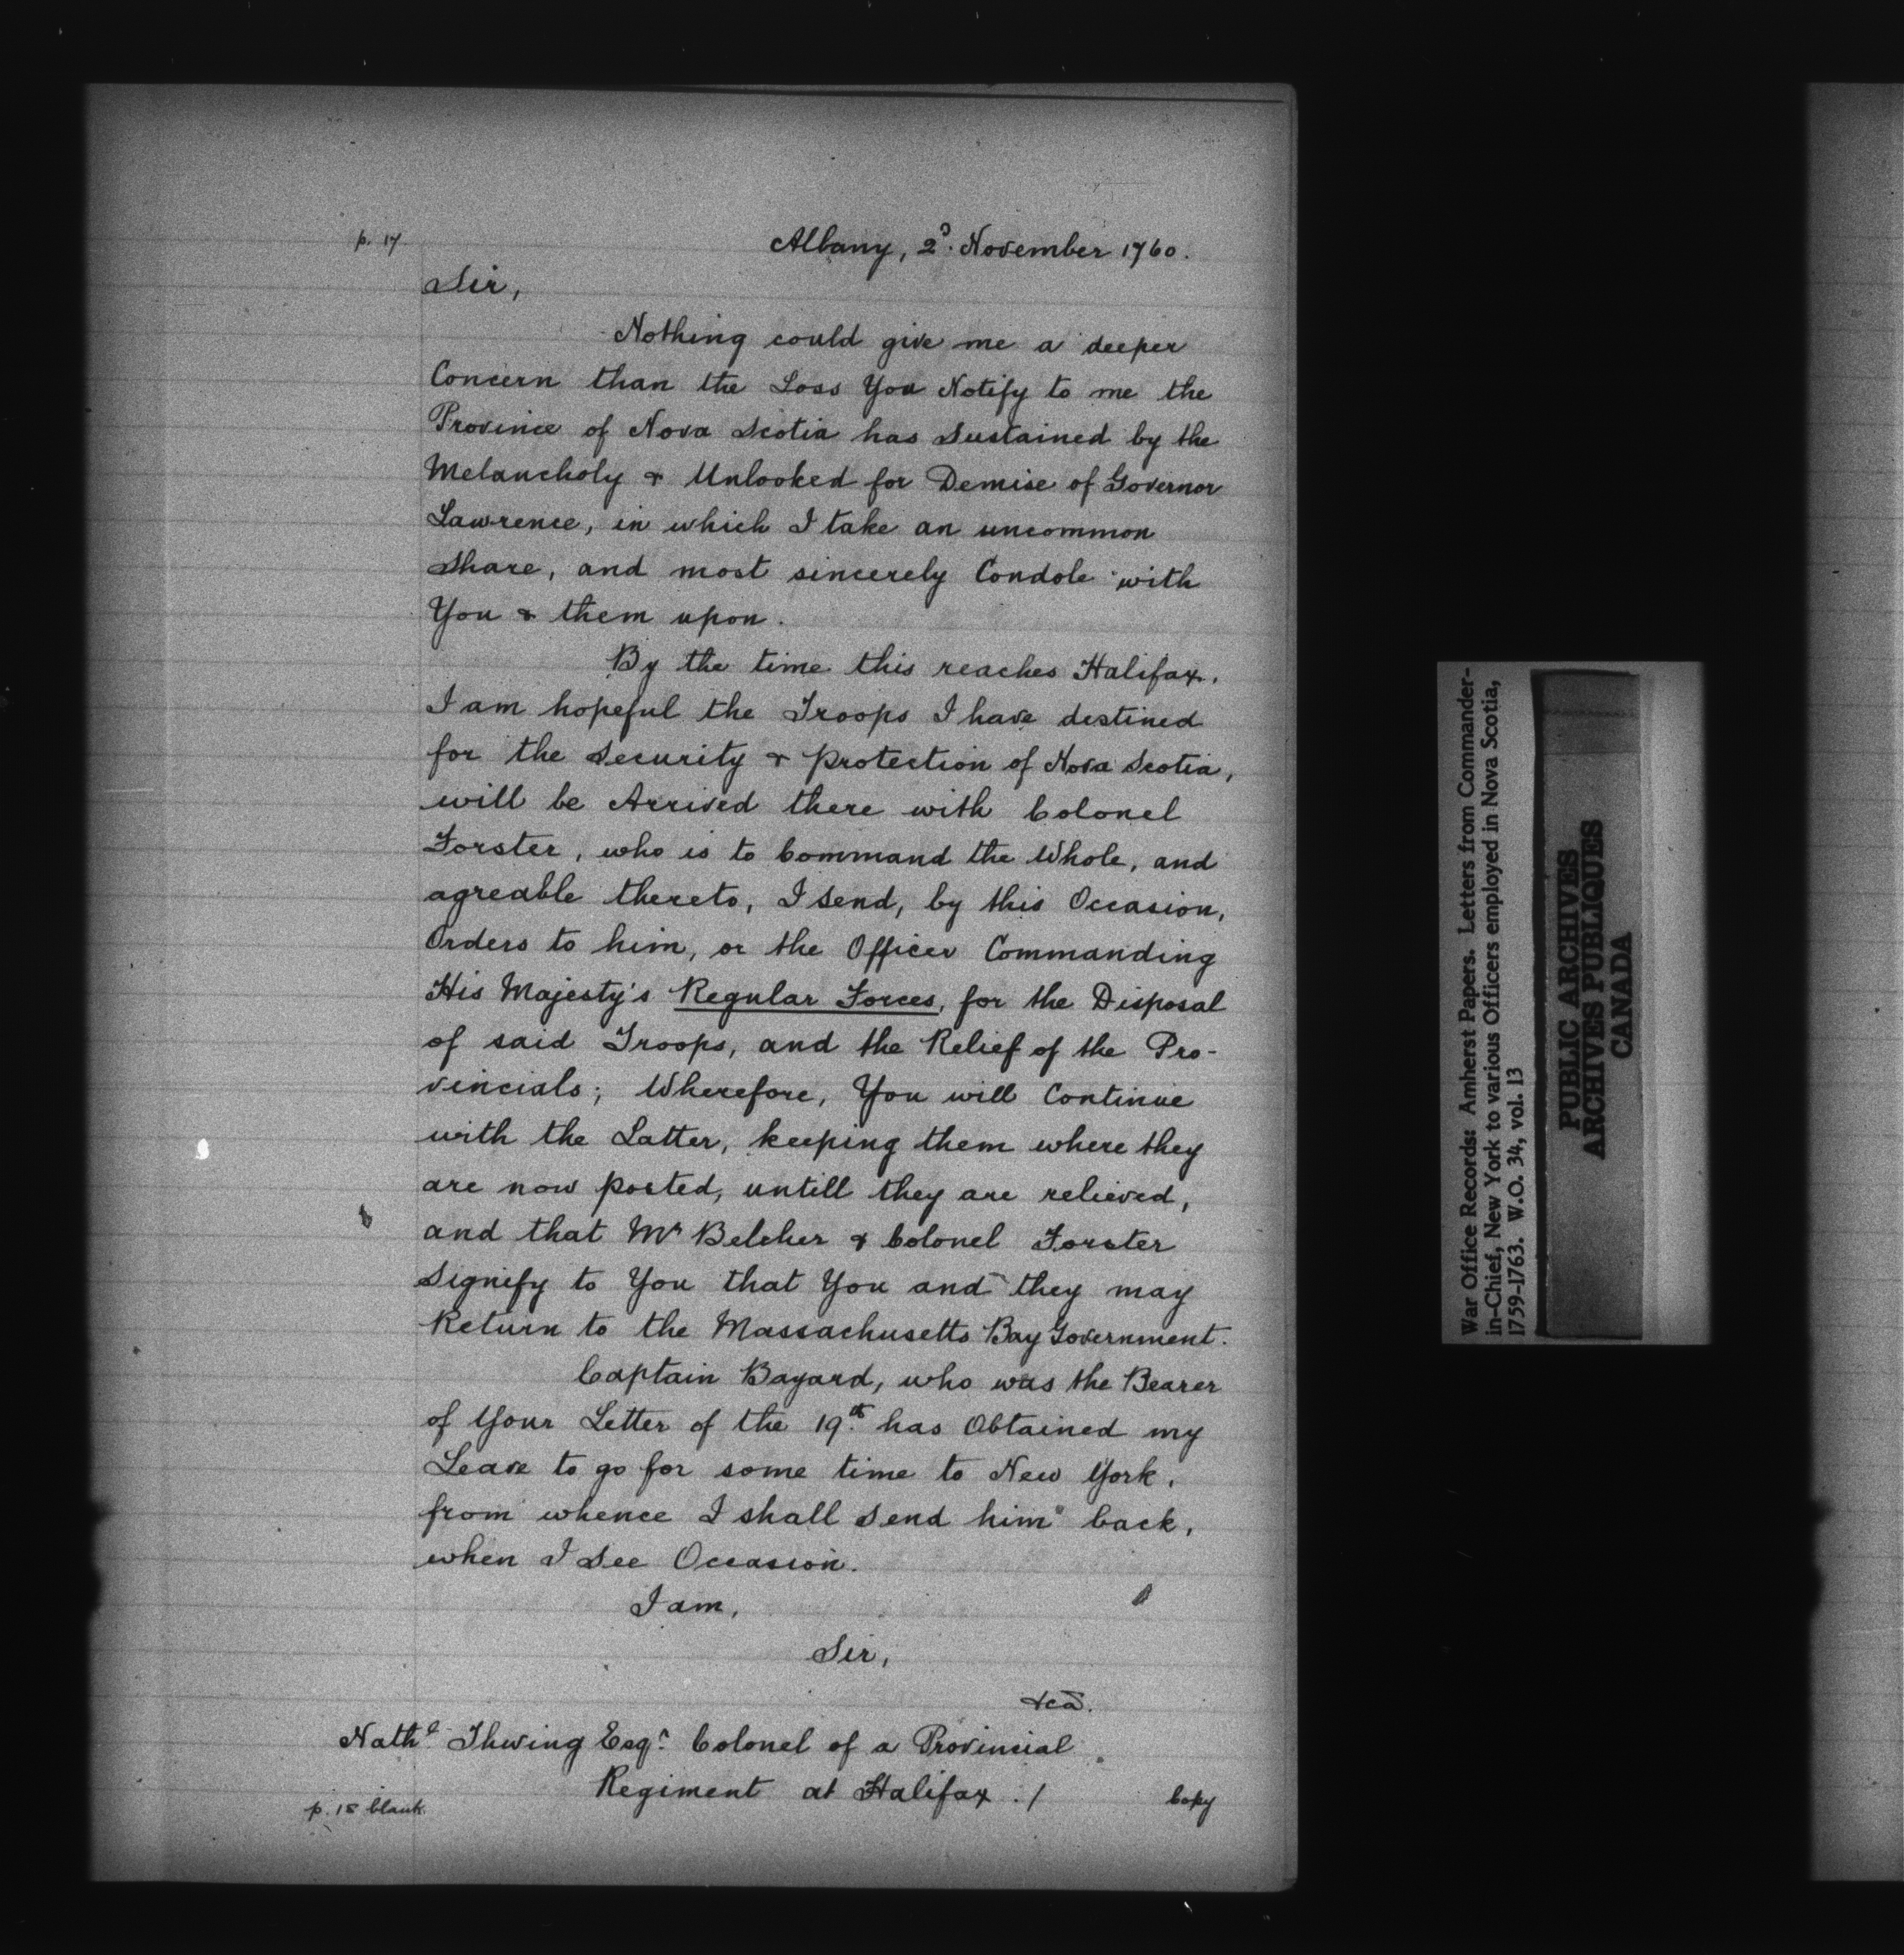 p. 17
Albany, 2d. November 1760.
Sir,
Nothing could give me a deeper
Concern than the Loss You Notify to me the
Province of Nova Scotia has Sustained by the
Melancholy & Unlooked for Demise of Governor
Lawrence, in which I take an uncommon
Share, and most sincerely Condole with
You & them upon.
By the time this reaches Halifax,
I am hopeful the Troops I have destined
for the Security & protection of Nova Scotia,
will be Arrived there with Colonel
Forster, who is to Command the Whole, and
agreable thereto, I send, by this Occasion,
Orders to him, or the Officer Commanding
His Majesty's Regular Forces, for the Disposal
of said Troops, and the Relief of the Pro-
vincials; Wherefore, You will Continue
with the Latter, keeping them where they
are now posted, untill they are relieved,
and that Mr Belcher & Colonel Forster
Signify to You that You and they may
Return to the Massachusetts Bay Government.
Captain Bayard, who was the Bearer
of Your Letter of the 19th. has Obtained my
Leave to go for some time to New York,
from whence I shall send him back,
when I See Occasion.
I am,
Sir,
&ca.
Nathl. Thwing Esqr. Colonel of a Provincial
Regiment at Halifax ./
p. 18 blank.
Copy
War Office Records: Amherst Papers. Letters from Commander-
in-Chief, New York to various Officers employed in Nova Scotia,
1759-1763. W.O. 34, vol. 13
PUBLIC ARCHIVES
ARCHIVES PUBLIQUES
CANADA